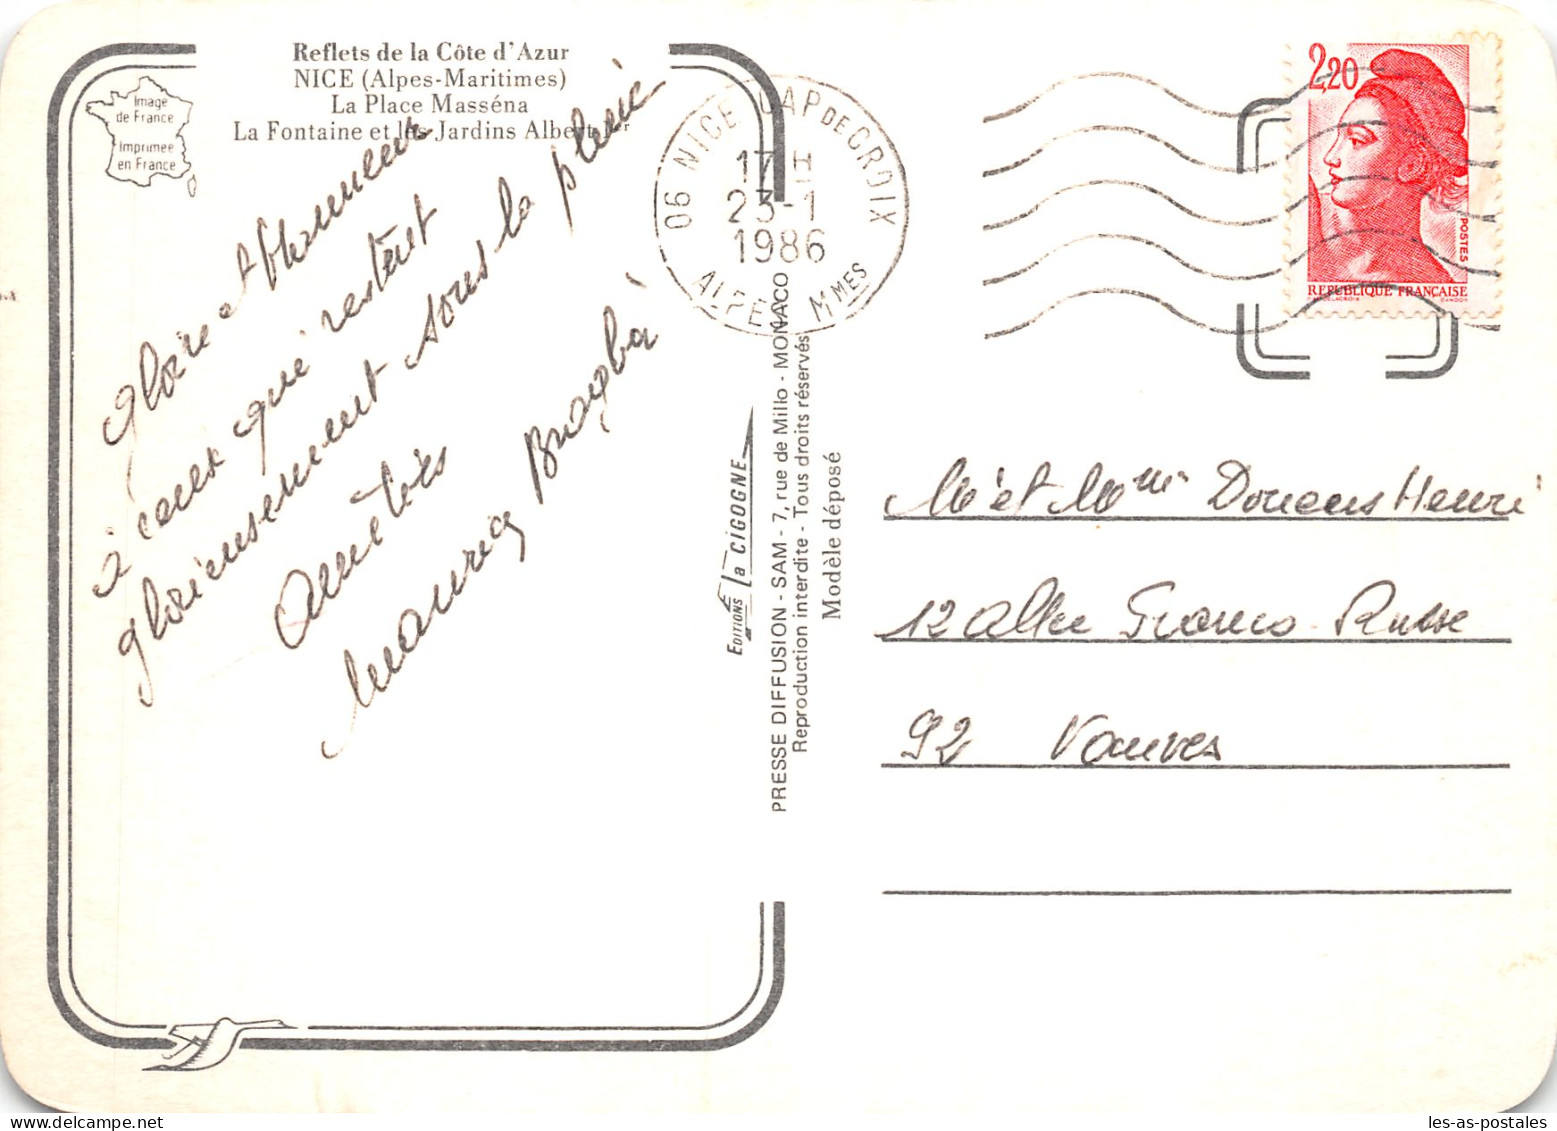 Reflets de la Côte d'Azur
NICE (Alpes-Maritimes)
La Place Masséna
La Fontaine et les Jardins Albert Ier
Image
de France
Imprimée
en France
Gloire et Honneur
à ceux qui restent
glorieusement sous la pluie
Amitiés
06 NICE CAP DE CROIX
17 H
23-1
1986
ALPES MMES
2,20
POSTES
REPUBLIQUE FRANÇAISE
EDITIONS La CIGOGNE
PRESSE DIFFUSION - SAM - 7, rue de Millo - MONACO
Reproduction interdite - Tous droits réservés
Modèle déposé
Mr et Mme Henri
12 Allée Franco-Russe
92 Vanves
les-as-postales